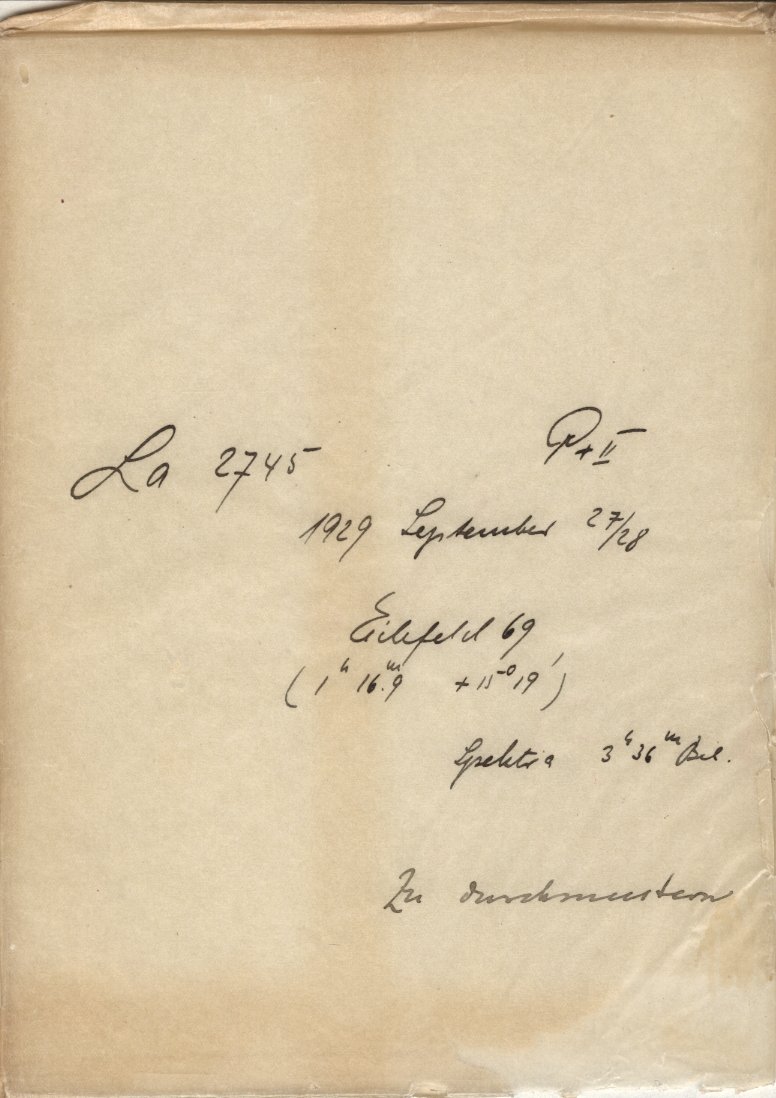 La 2745 P+II
1929 September 27/28
Eichfeld 69
(1ʰ 16ᵐ.9 +15°19')
Spektra 3ʰ36ᵐ Bel.
Zu durchmustern